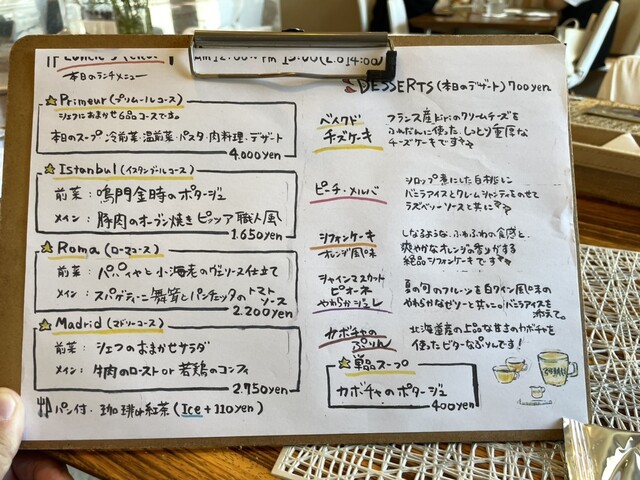 Lunch's
AM 12:00~PM 15:00 (L.o 14:00)
本日のランチメニュー
Primeur (プリムールコース)
シェフにおまかせ6品コースです。
本日のスープ・冷前菜・温前菜・パスタ・肉料理・デザート
4.000yen
Istanbul (イスタンブールコース)
前菜：鳴門金時のポタージュ
メイン：豚肉のオーブン焼き ピッツア職人風
1.650yen
Roma (ローマコース)
前菜：パパイヤと小海老のヴェソース仕立て
メイン：スパゲティーニ舞茸とパンチェッタのトマト
ソース
2.200yen
Madrid (マドリーコース)
前菜：シェフのおまかせサラダ
メイン：牛肉のロースト or 若鶏のコンフィ
2.750yen
パン付・珈琲or紅茶 (Ice+110yen)
DESSERTS (本日のデザート) 700yen
ベイクド
チーズケーキ
フランス産kiriのクリームチーズを
ふんだんに使った、しっとり重厚な
チーズケーキです
ピーチ・メルバ
シロップ煮にした白桃に
バニラアイスとクレームシャンティをのせて
ラズベリーソースと共に
シフォンケーキ
オレンジ風味
しなるような、ふわふわの食感と、
爽やかなオレンジの香りがする
絶品シフォンケーキです
シャインマスカット
ピオーネ
やわらかジュレ
夏の旬のフルーツを白ワイン風味の
やわらかなゼリーと共に。バニラアイスを
添えて。
カボチャの
ぷりん
北海道産の上品な甘さのカボチャを
使ったビターなぷりんです！
単品スープ
カボチャのポタージュ
400yen